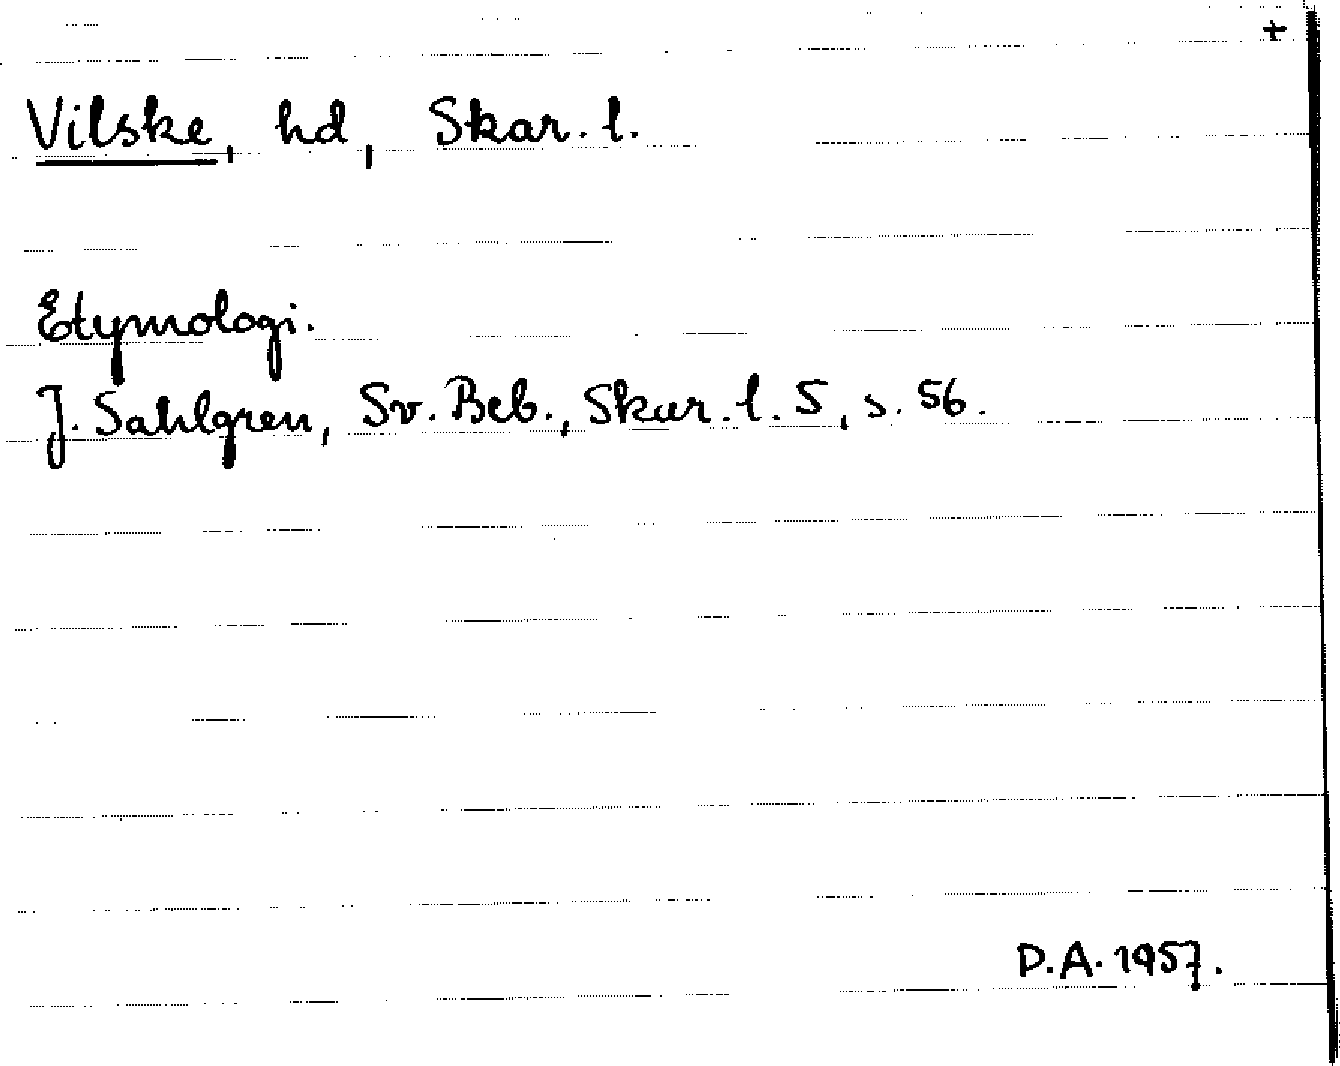 +
Vilske, hd, Skar. l.
Etymologi.
J. Sahlgren, Sv. Beb., Skar. l. 5, s. 56.
D.A. 1957.